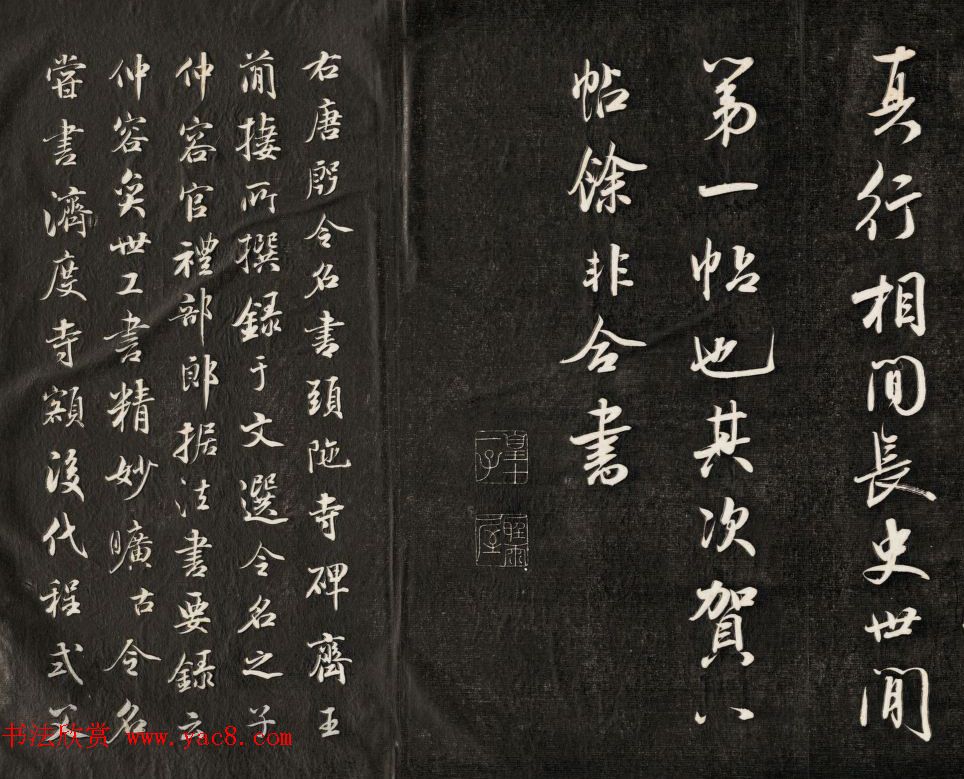 真行相間長史世間
第一帖也其次賀八
帖餘非合書
皇十一子
右唐殷令名書頭陁寺碑齊王
簡捿所撰録于文選令名之子
仲容官禮部郎据法書要録云
仲容奕世工書精妙曠古令名
嘗書濟度寺額後代程式
书法欣赏 www.yac8.com